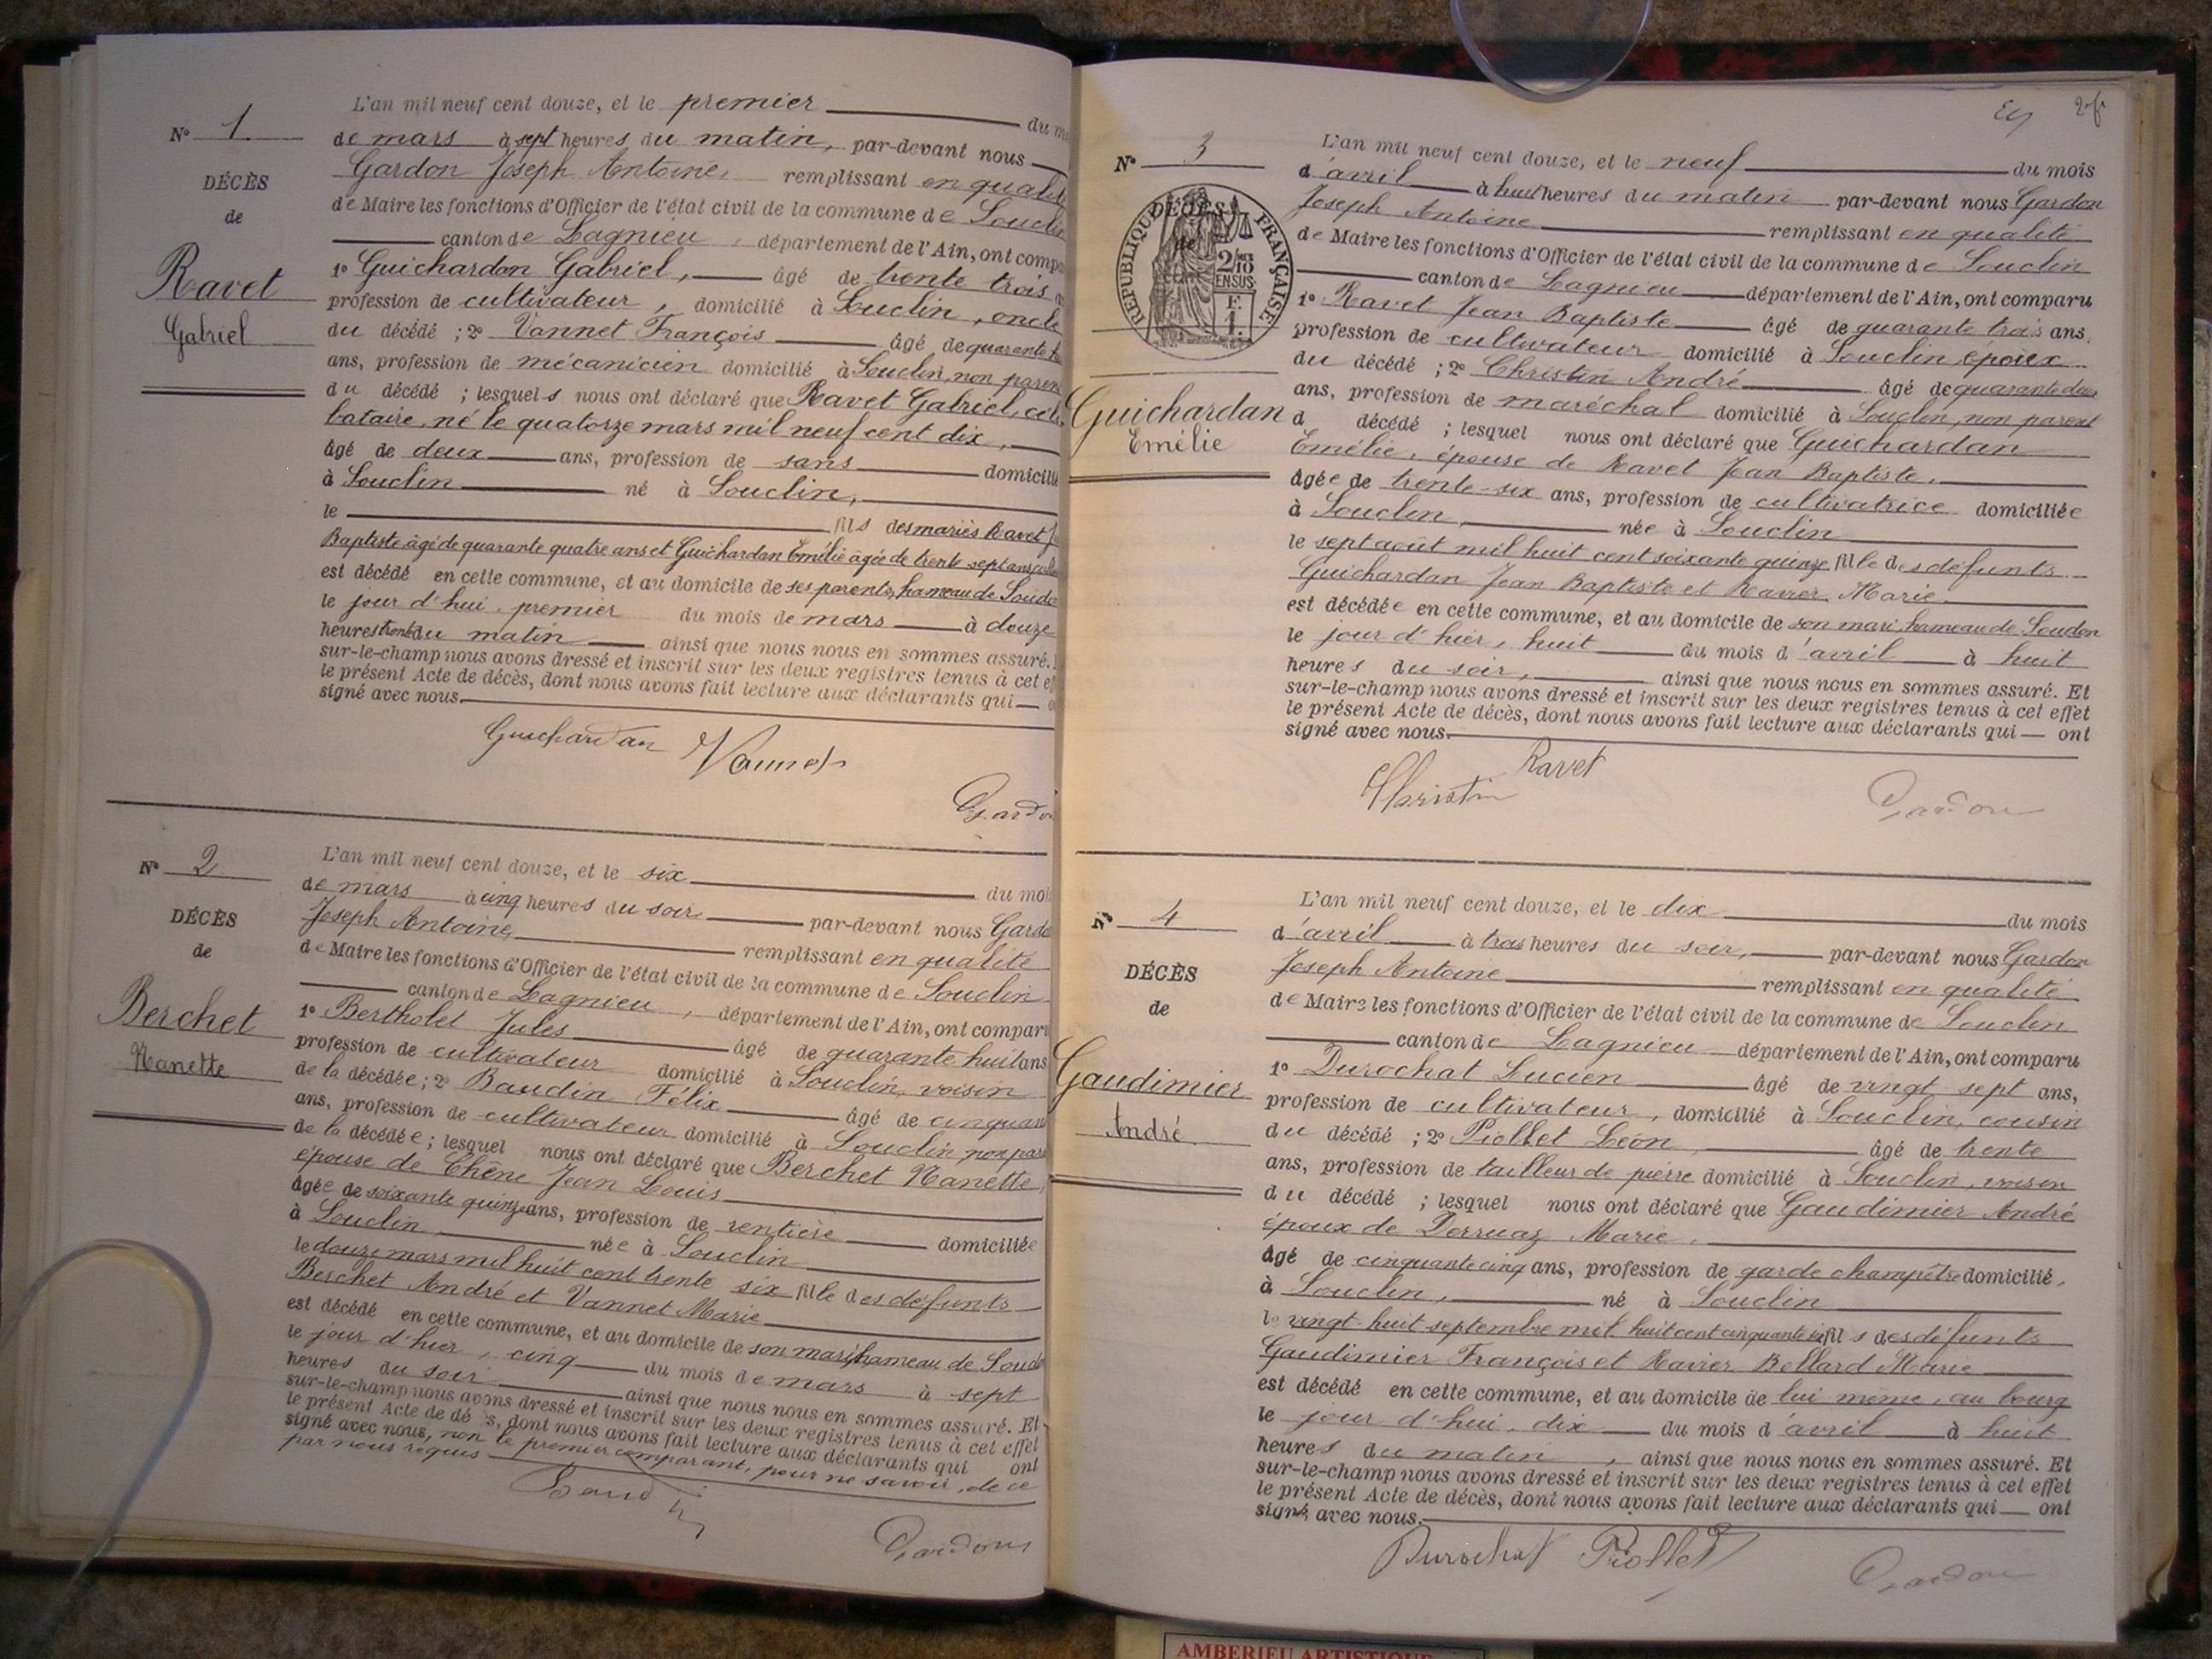 N° 1
DÉCÈS
de
Ravet
Gabriel
L'an mil neuf cent douze, et le premier du m
de mars à sept heures du matin, par-devant nous
Gardon Joseph Antoine, remplissant en qualit
de Maire les fonctions d'Officier de l'état civil de la commune de Souclin
canton de Lagnieu, département de l'Ain, ont comp
1° Guichardan Gabriel, âgé de trente trois
profession de cultivateur, domicilié à Souclin, oncle
du décédé ; 2° Vannet François âgé de quarante
ans, profession de mécanicien domicilié à Souclin, non paren
du décédé ; lesquels nous ont déclaré que Ravet Gabriel, céli
bataire, né le quatorze mars mil neuf cent dix,
âgé de deux ans, profession de sans domicilié
à Souclin né à Souclin,
le fils des mariés Ravet J
Baptiste âgé de quarante quatre ans et Guichardan Emélie âgée de trente sept ans
est décédé en cette commune, et au domicile de ses parents, hameau de Soudo
le jour d'hui premier du mois de mars à douze
heures trente du matin ainsi que nous nous en sommes assuré.
sur-le-champ nous avons dressé et inscrit sur les deux registres tenus à cet ef
le présent Acte de décès, dont nous avons fait lecture aux déclarants qui o
signé avec nous.
Guichardan Vannet
Gardo
N° 2
DÉCÈS
de
Berchet
Nanette
L'an mil neuf cent douze, et le six du moi
de mars à cinq heures du soir par-devant nous Gardo
Joseph Antoine, remplissant en qualité
de Maire les fonctions d'Officier de l'état civil de la commune de Souclin
canton de Lagnieu, département de l'Ain, ont comparu
1° Bertholet Jules âgé de quarante huit ans
profession de cultivateur domicilié à Souclin, voisin
de la décédée ; 2° Baudin Félix âgé de cinquan
ans, profession de cultivateur domicilié à Souclin, non par
de la décédée ; lesquel nous ont déclaré que Berchet Nanette,
épouse de Chêne Jean Louis
âgée de soixante quinze ans, profession de rentière domiciliée
à Souclin née à Souclin
le douze mars mil huit cent trente six fille des défunts
Berchet André et Vannet Marie
est décédé en cette commune, et au domicile de son mari, hameau de Soudo
le jour d'hier, cinq du mois de mars à sept
heures du soir ainsi que nous nous en sommes assuré. Et
sur-le-champ nous avons dressé et inscrit sur les deux registres tenus à cet effet
le présent Acte de dé s, dont nous avons fait lecture aux déclarants qui ont
signé avec nous, non le premier comparant, pour ne savoir, de ce
par nous requis
Baudin
Gardon
N° 3
DÉCÈS
de
RÉPUBLIQUE FRANÇAISE
2/10
EN SUS
F.
1.
Guichardan
Emélie
L'an mil neuf cent douze, et le neuf du mois
d'avril à huit heures du matin par-devant nous Gardon
Joseph Antoine remplissant en qualité
de Maire les fonctions d'Officier de l'état civil de la commune de Souclin
canton de Lagnieu département de l'Ain, ont comparu
1° Ravet Jean Baptiste âgé de quarante trois ans,
profession de cultivateur domicilié à Souclin, époux
du décédé ; 2° Christin André âgé de quarante deux
ans, profession de maréchal domicilié à Souclin, non parent
d décédé ; lesquel nous ont déclaré que Guichardan
Emélie, épouse de Ravet Jean Baptiste,
âgée de trente-six ans, profession de cultivatrice domiciliée
à Souclin, née à Souclin
le sept août mil huit cent soixante quinze fille des défunts
Guichardan Jean Baptiste et Ravier Marie
est décédée en cette commune, et au domicile de son mari, hameau de Soudon
le jour d'hier, huit du mois d'avril à huit
heures du soir, ainsi que nous nous en sommes assuré. Et
sur-le-champ nous avons dressé et inscrit sur les deux registres tenus à cet effet
le présent Acte de décès, dont nous avons fait lecture aux déclarants qui ont
signé avec nous.
Ravet
Christin
Gardon
N° 4
DÉCÈS
de
Gaudimier
André
L'an mil neuf cent douze, et le dix du mois
d'avril à trois heures du soir, par-devant nous Gardon
Joseph Antoine remplissant en qualité
de Maire les fonctions d'Officier de l'état civil de la commune de Souclin
canton de Lagnieu département de l'Ain, ont comparu
1° Durochat Lucien âgé de vingt sept ans,
profession de cultivateur, domicilié à Souclin, cousin
du décédé ; 2° Piollet Léon, âgé de trente
ans, profession de tailleur de pierre domicilié à Souclin, voisin
du décédé ; lesquel nous ont déclaré que Gaudimier André
époux de Derruaz Marie,
âgé de cinquante cinq ans, profession de garde champêtre domicilié,
à Souclin, né à Souclin
le vingt-huit septembre mil huit cent cinquante six fils des défunts
Gaudimier François et Ravier Bollard Marie
est décédé en cette commune, et au domicile de lui même, au bourg
le jour d'hui, dix du mois d'avril à huit
heures du matin, ainsi que nous nous en sommes assuré. Et
sur-le-champ nous avons dressé et inscrit sur les deux registres tenus à cet effet
le présent Acte de décès, dont nous avons fait lecture aux déclarants qui ont
signé avec nous.
Durochat Piollet
Gardon
AMBERIEU ARTISTIQUE